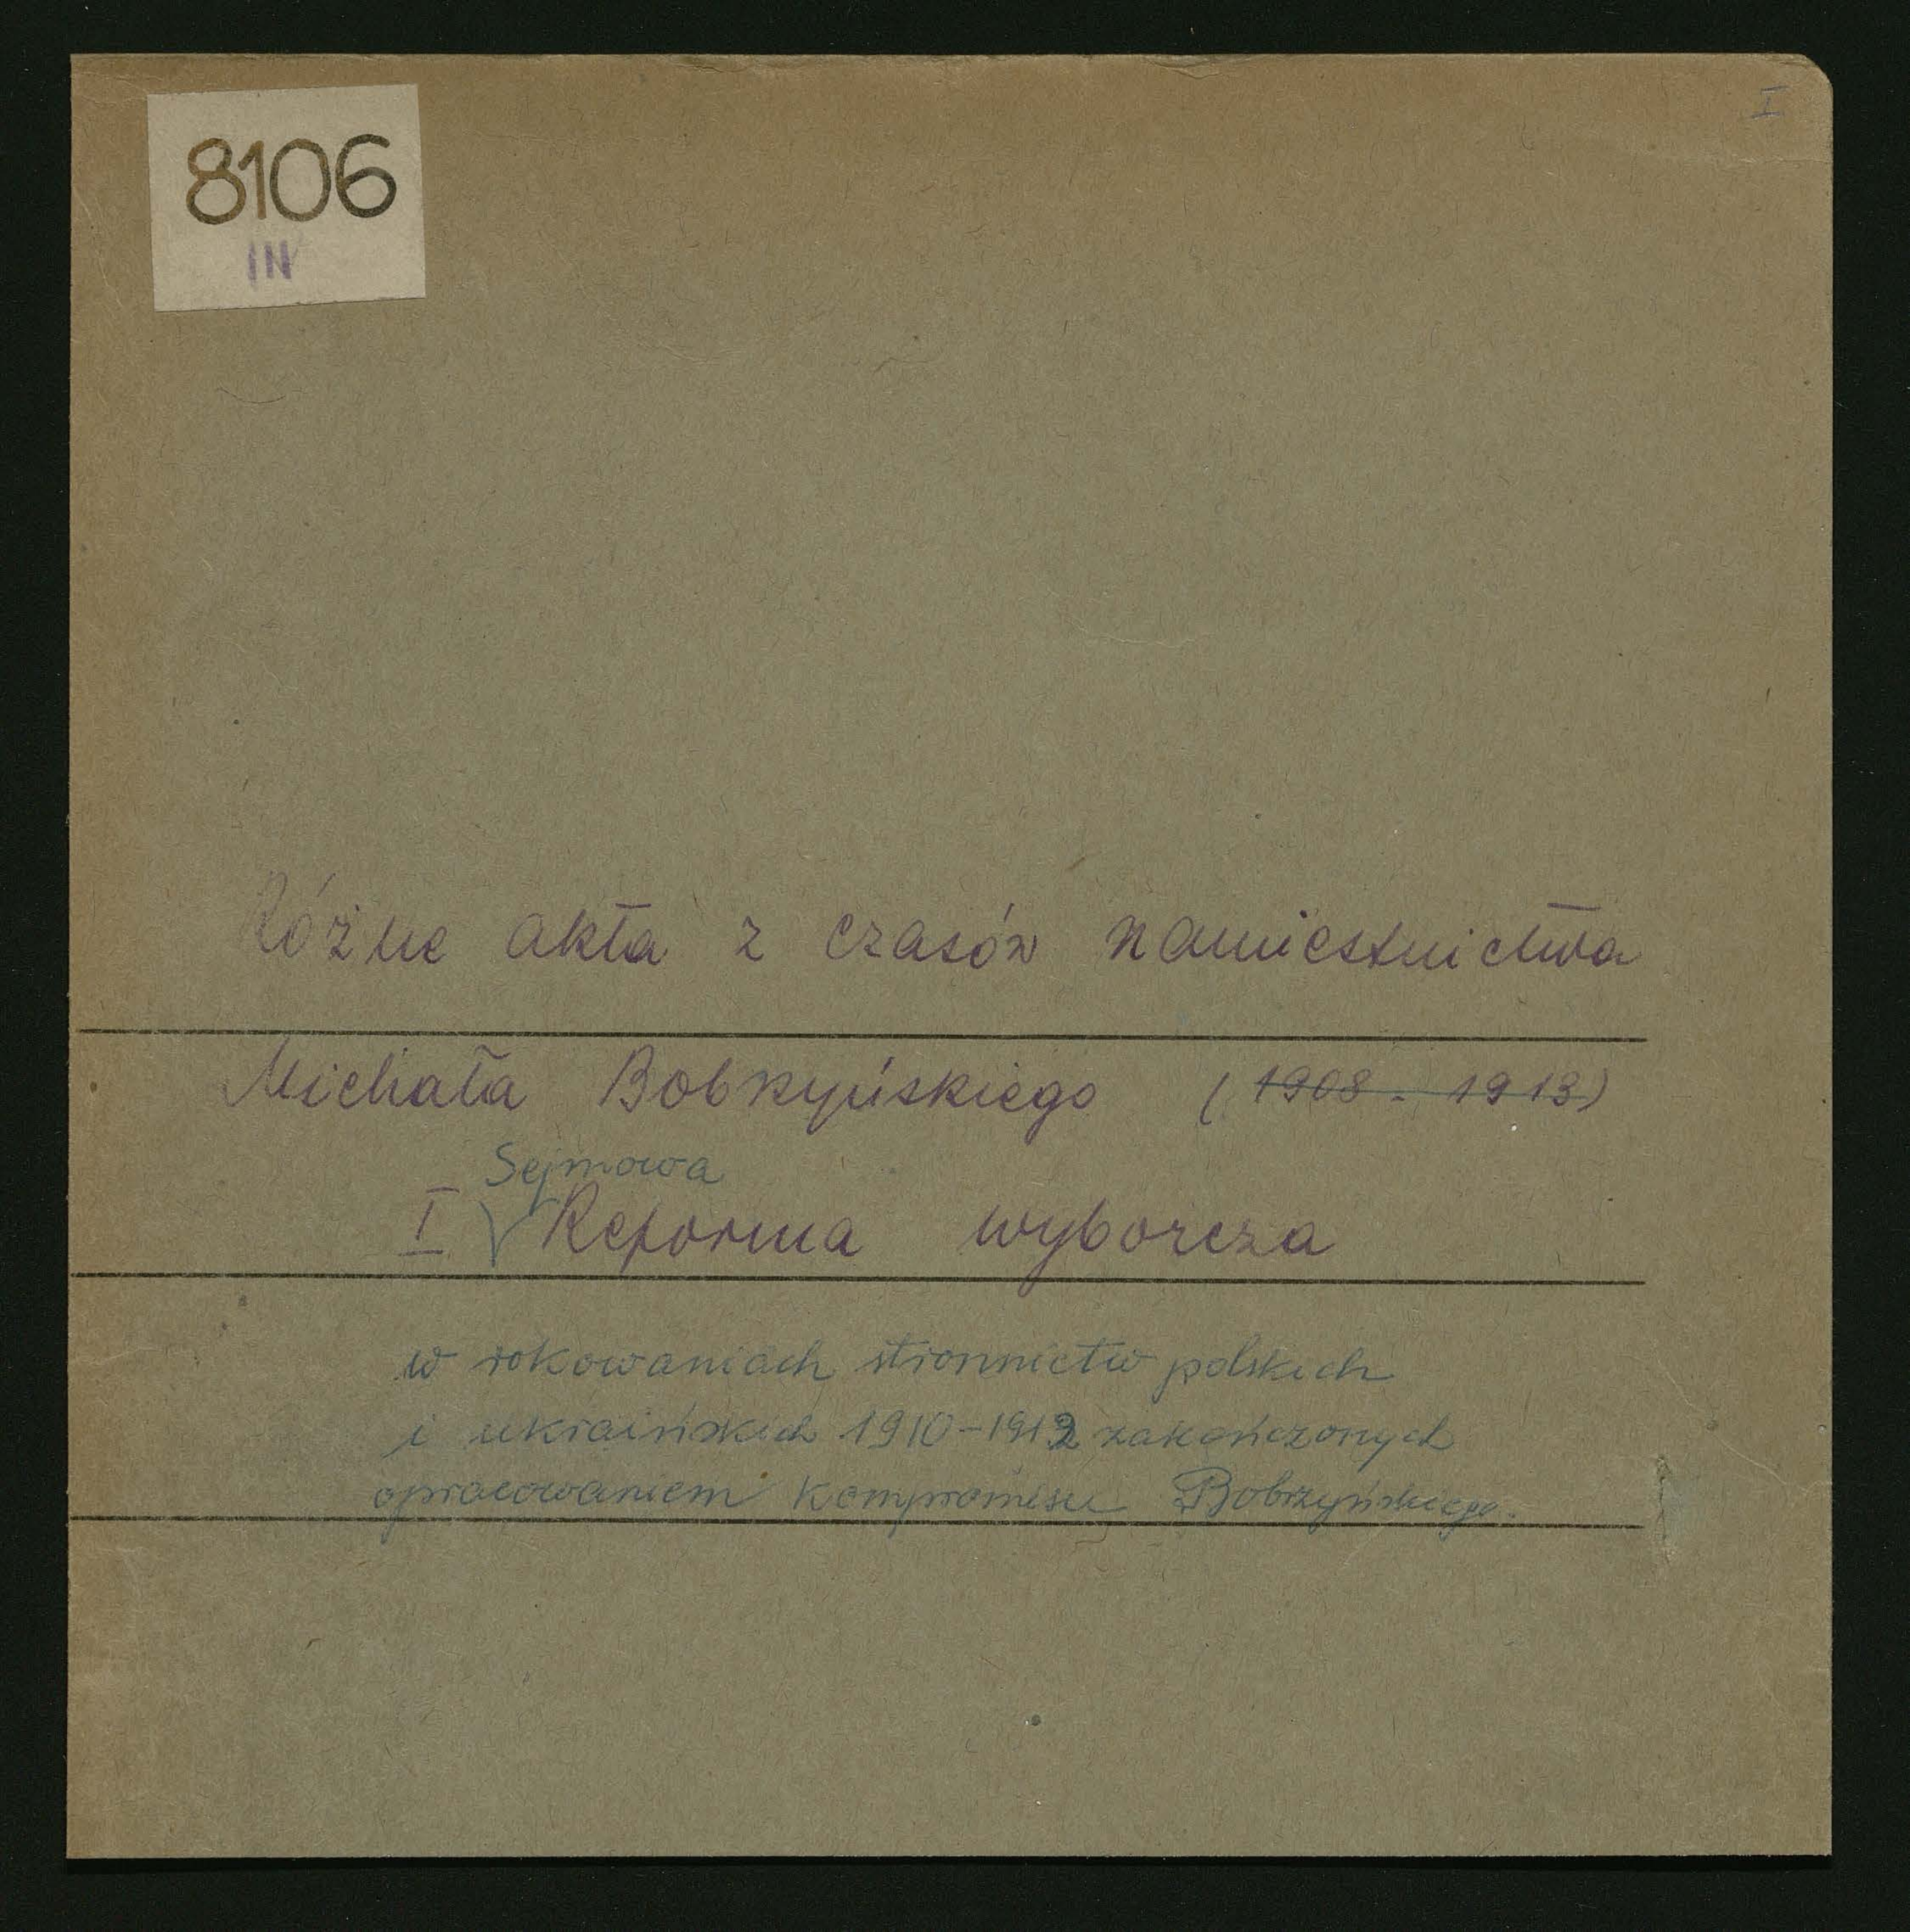 I
8106
IN
Różne akta z czasów namiestnictwa
Michała Bobrzyńskiego (1908 - 1913)
Sejmowa
I Reforma wyborcza
w rokowaniach stronnictw polskich
i ukraińskich 1910-1912 zakończonych
opracowaniem kompromisu Bobrzyńskiego.